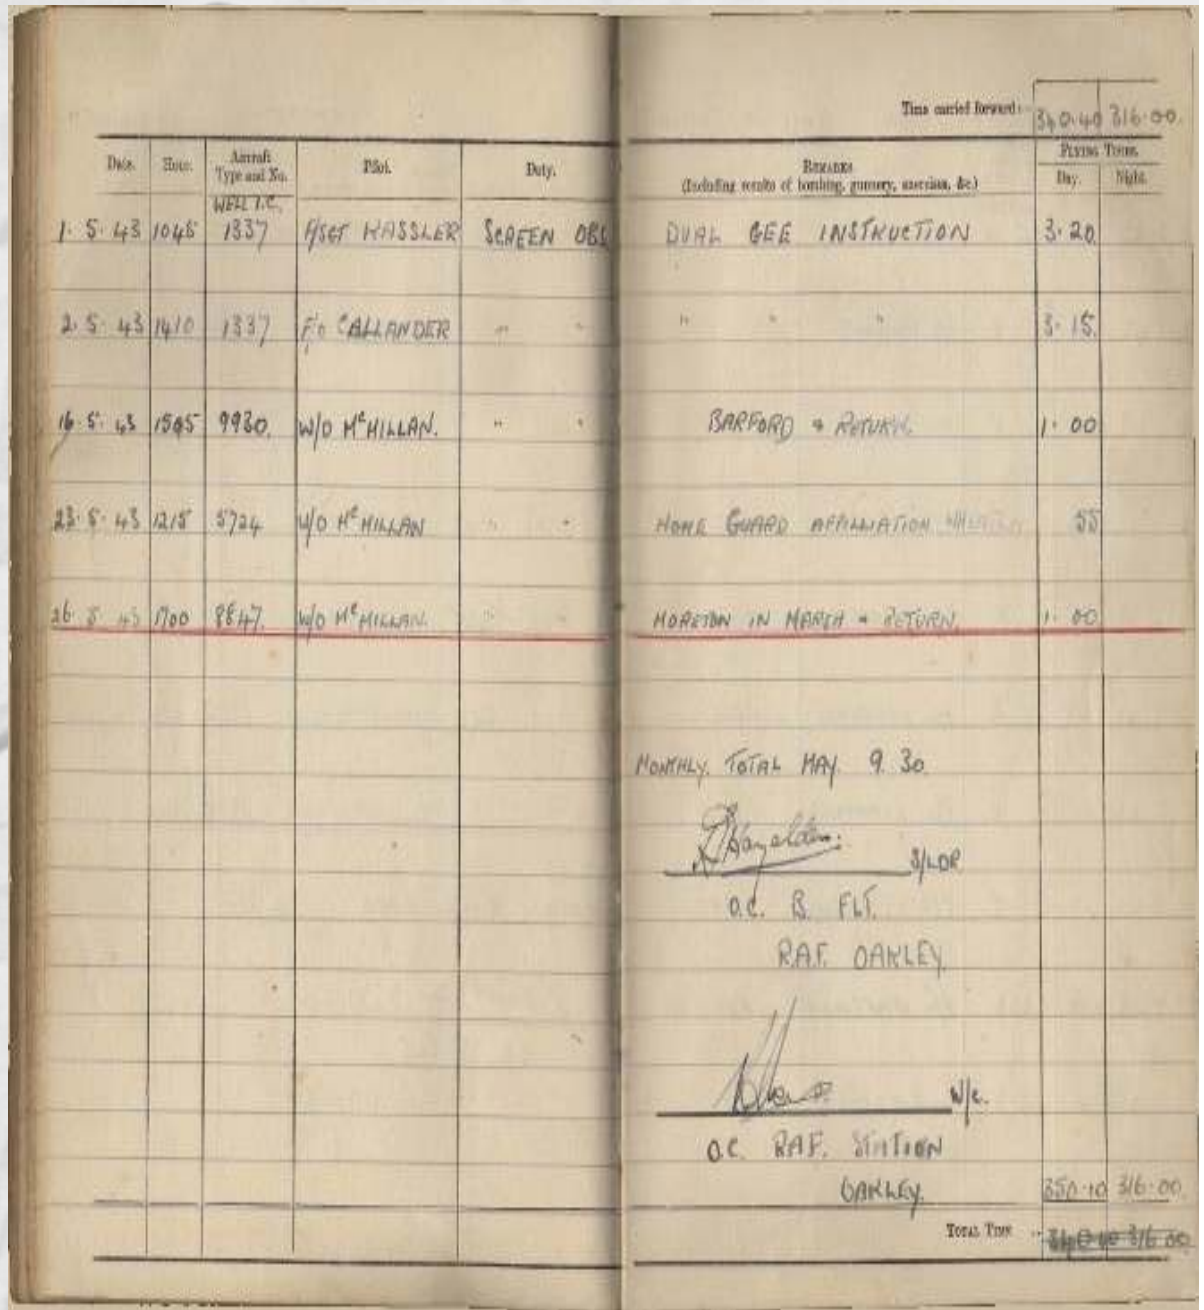 Time carried forward:- 340.40 316.00
Date. Hour. Aircraft Type and No. Pilot. Duty. REMARKS (Including results of bombing, gunnery, exercises, &c.) FLYING TIMES. Day. Night.
WELL I.C.
1. 5. 43 1045 1337 F/SGT KASSLER SCREEN OBS DUAL GEE INSTRUCTION 3.20
2. 5. 43 1410 1337 F/O CALLANDER " " " " " 3.15
16. 5. 43 1505 9930. W/O McMILLAN. " " BARFORD & RETURN. 1.00
23. 5. 43 1215 5724 W/O McMILLAN " " HOME GUARD AFFILIATION 55
26. 5. 43 1700 8847. W/O McMILLAN. " " MORETON IN MARSH & RETURN. 1.00
MONTHLY. TOTAL MAY. 9.30.
S/LDR
O.C. B. FLT.
R.A.F. OAKLEY.
W/C.
O.C. RAF. STATION
OAKLEY. 350.10 316.00
TOTAL TIME .. 340.40 316.00